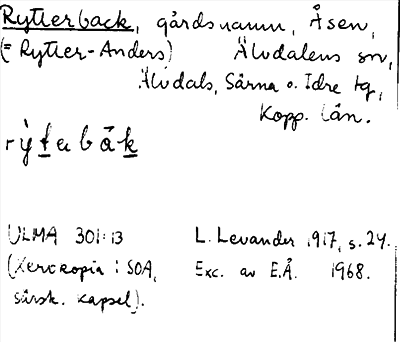 Rytterback, gårdsnamn, Åsen,
(= Rytter-Anders) Älvdalens sn,
Älvdals, Särna o. Idre tg,
Kopp. län.
rỳtebåk
ULMA 301:13 L. Levander 1917, s. 24.
(Xeroxkopia i SOA, Exc. av E.Å. 1968.
särsk. kapsel).